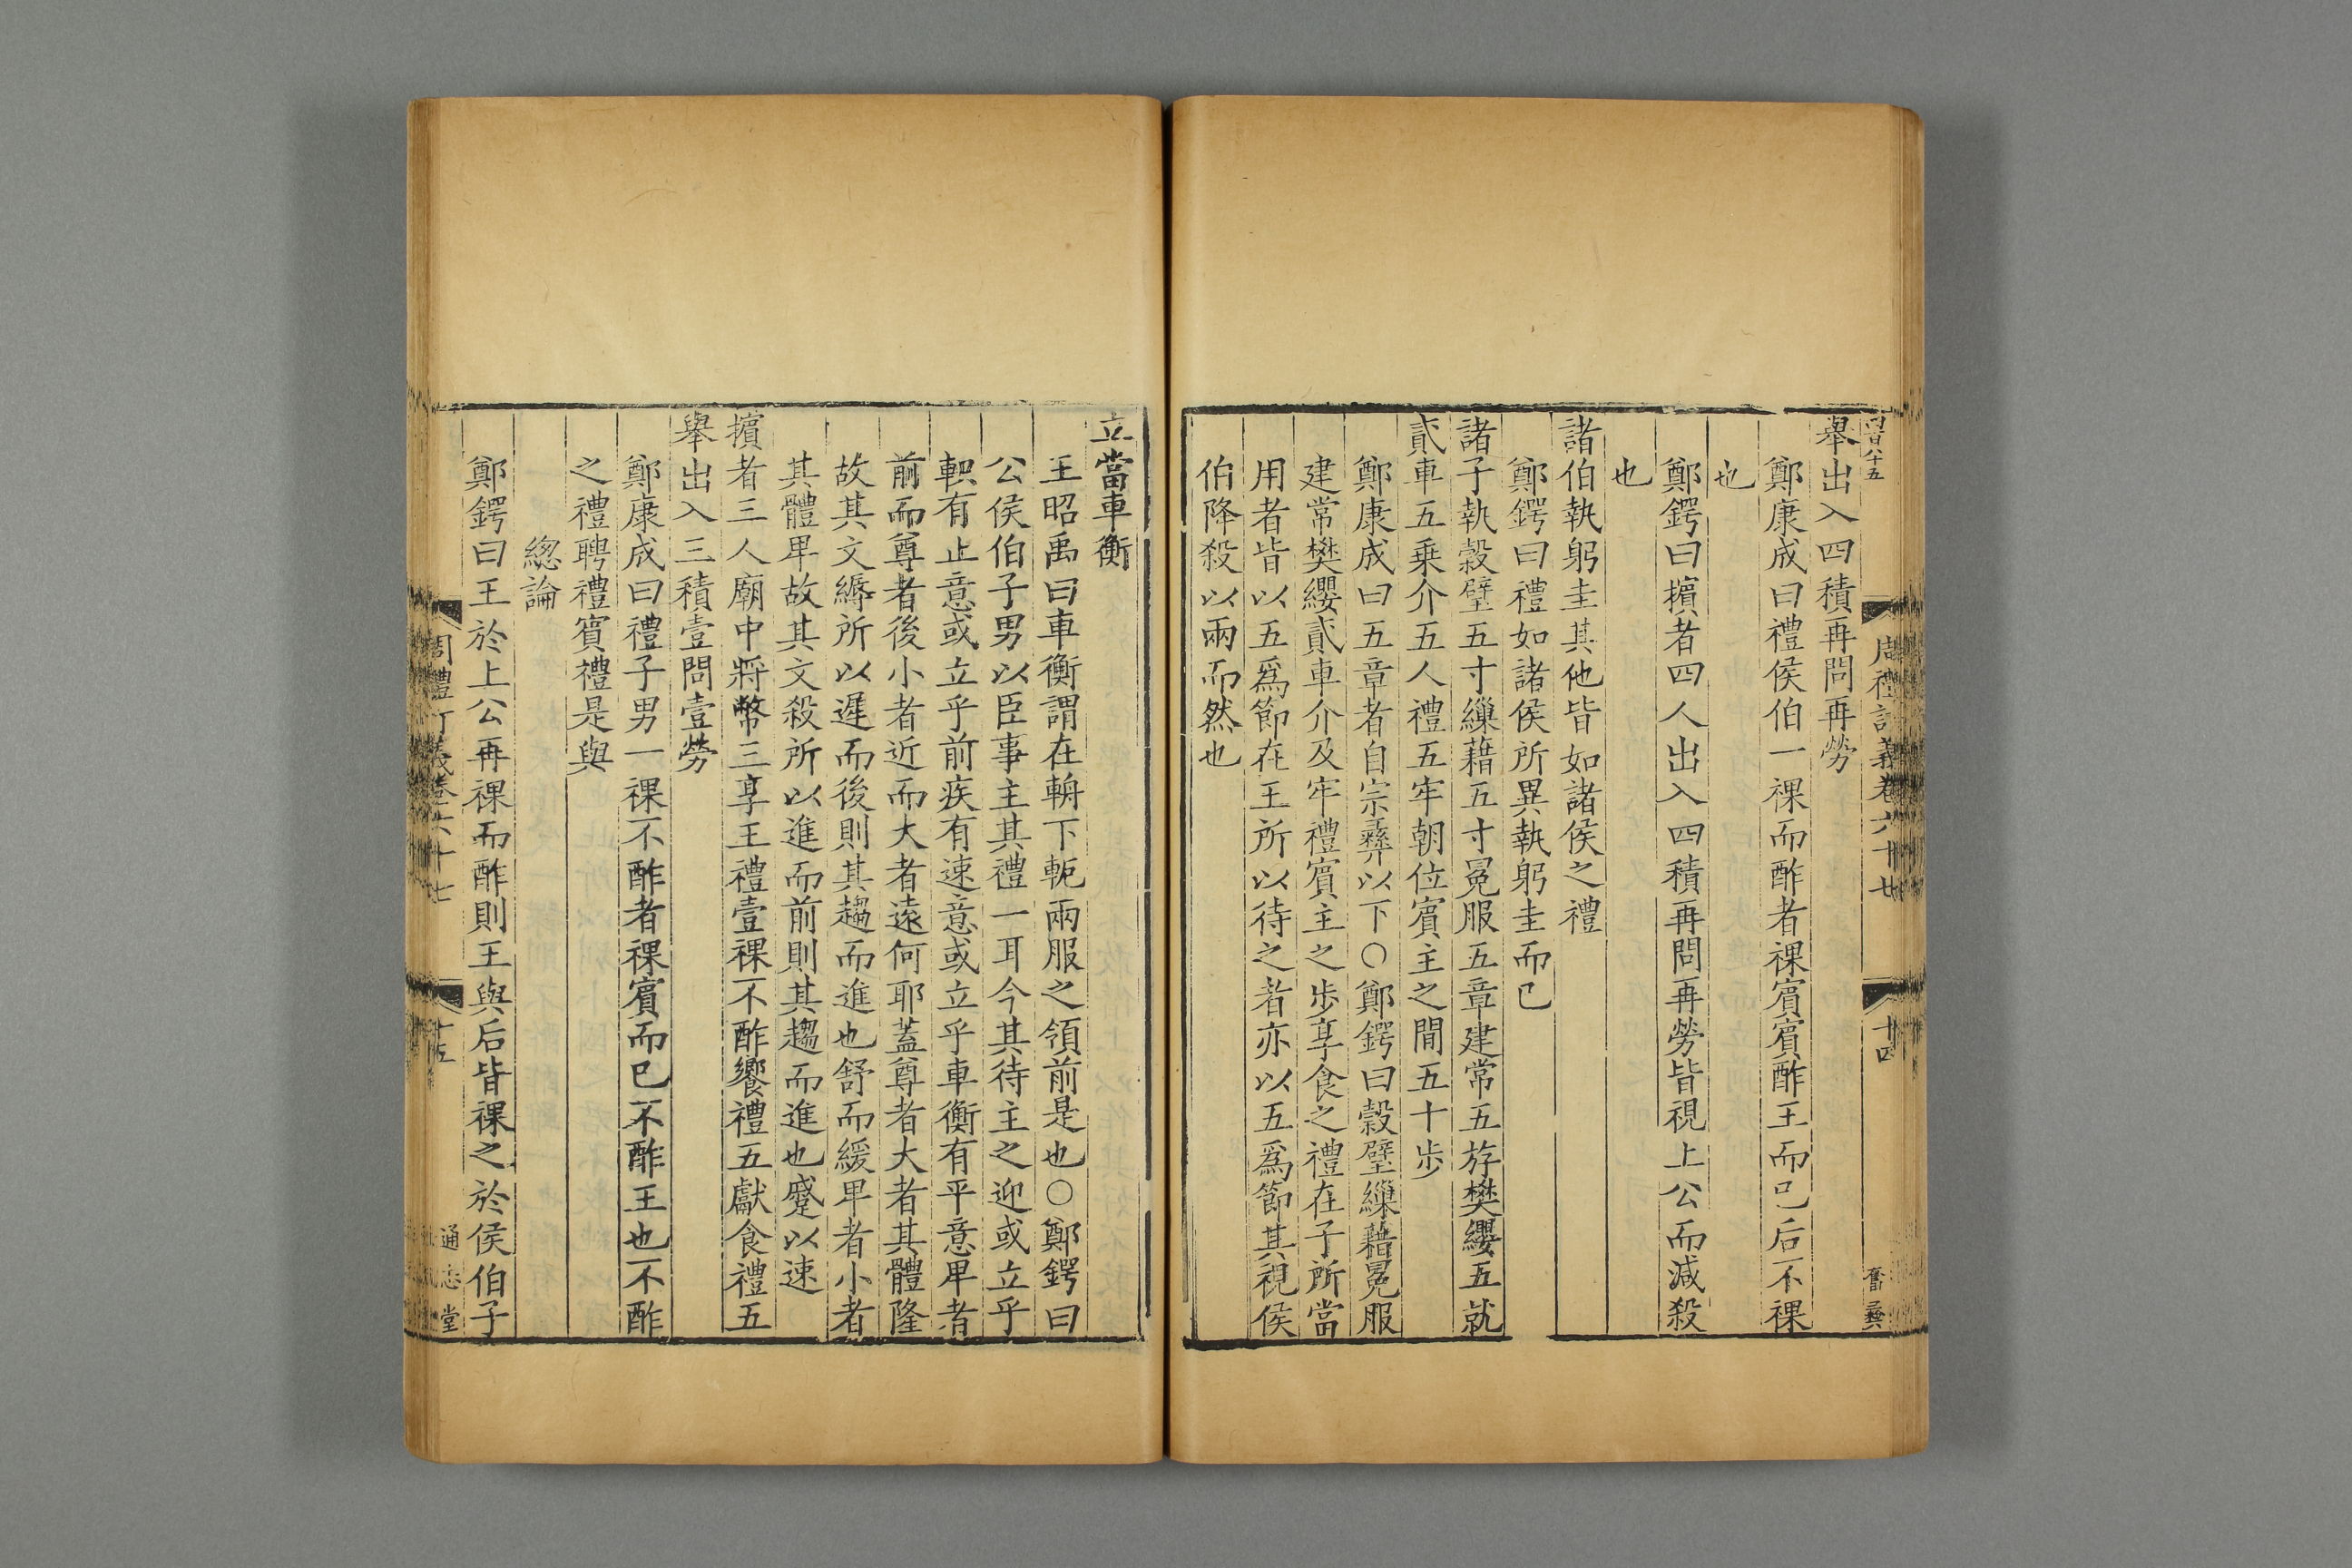 四百八十五
周禮訂義卷六十七
十四
舉出入四積再問再勞
鄭康成曰禮侯伯一祼而酢者祼賓賓酢王而已后不祼
也
鄭鍔曰擯者四人出入四積再問再勞皆視上公而減殺
也
諸伯執躬圭其他皆如諸侯之禮
鄭鍔曰禮如諸侯所異執躬圭而已
諸子執穀璧五寸繅藉五寸冕服五章建常五斿樊纓五就
貳車五乗介五人禮五牢朝位賓主之間五十步
鄭康成曰五章者自宗彝以下○鄭鍔曰穀璧繅藉冕服
建常樊纓貳車介及牢禮賓主之步享食之禮在子所當
用者皆以五爲節在王所以待之者亦以五爲節其視侯
伯降殺以兩而然也
立當車衡
王昭禹曰車衡謂在輈下軛兩服之領前是也○鄭鍔曰
公侯伯子男以臣事主其禮一耳今其待主之迎或立乎
軹有止意或立乎前疾有速意或立乎車衡有平意卑者
前而尊者後小者近而大者遠何耶蓋尊者大者其體隆
故其文縟所以遲而後則其趨而進也舒而緩卑者小者
其體卑故其文殺所以進而前則其趨而進也蹙以速
擯者三人廟中將幣三享王禮壹祼不酢饗禮五獻食禮五
舉出入三積壹問壹勞
鄭康成曰禮子男一祼不酢者祼賓而已不酢王也不酢
之禮聘禮賓禮是與
緫論
鄭鍔曰王於上公再祼而酢則王與后皆祼之於侯伯子
周禮訂義卷六十七
十五
通志堂